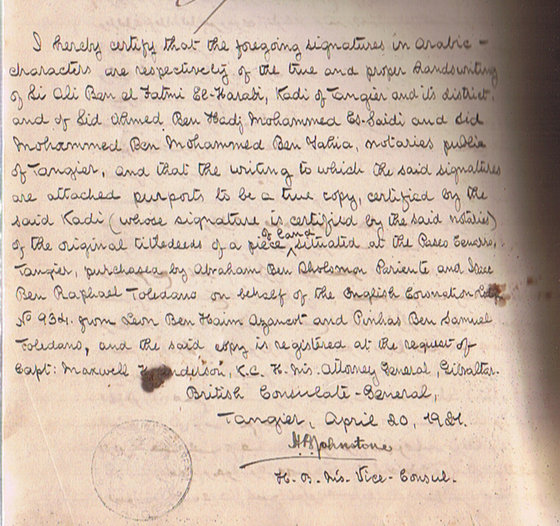 I hereby certify that the foregoing signatures in Arabic-
characters are respectively of the true and proper handwriting
of Si Ali Ben el Fatmi El-Harati, Kadi of Tangier and its district,
and of Sid Ahmed Ben Hadj Mohammed Es-Saidi and Sid
Mohammed Ben Mohammed Ben Yahia, notaries public
of Tangier, and that the writing to which the said signatures
are attached purports to be a true copy, certified by the
said Kadi (whose signature is certified by the said notaries)
of the original titledeeds of a piece of land situated at the Paseo
Tangier, purchased by Abraham Ben Sholomon Pariente and Isaac
Ben Raphael Toledano on behalf of the English Coronation Lodge
Nº 934. from Leon Ben Haim Azancot and Pinhas Ben Samuel
Toledano, and the said copy is registered at the request of
Capt: Maxwell H. Anderson, K.C. H. Ms. Attorney General, Gibraltar.
British Consulate-General,
Tangier, April 20, 1921.
H B Johnstone
H. B. Ms. Vice-Consul.